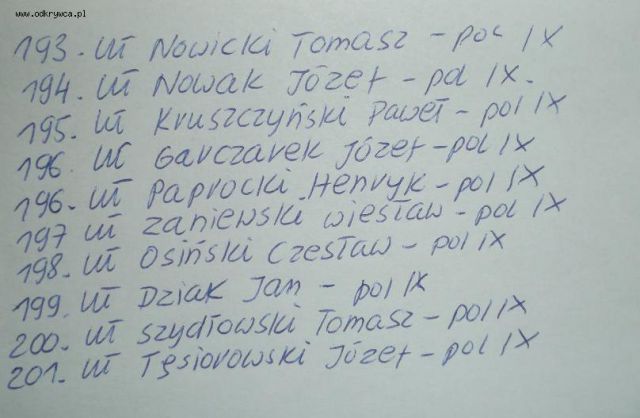 www.odkrywca.pl
193. uł Nowicki Tomasz - pol IX
194. uł Nowak Józef - pol IX.
195. uł Kruszczyński Paweł - pol IX
196. uł Garczarek Józef - pol IX
196. uł Paprocki Henryk - pol IX
197 uł Zaniewski Wiesław - pol IX
198. uł Osiński Czesław - pol IX
199. uł Dziak Jan - pol IX
200. uł Szydłowski Tomasz - pol IX
201. uł Tęsiorowski Józef - pol IX